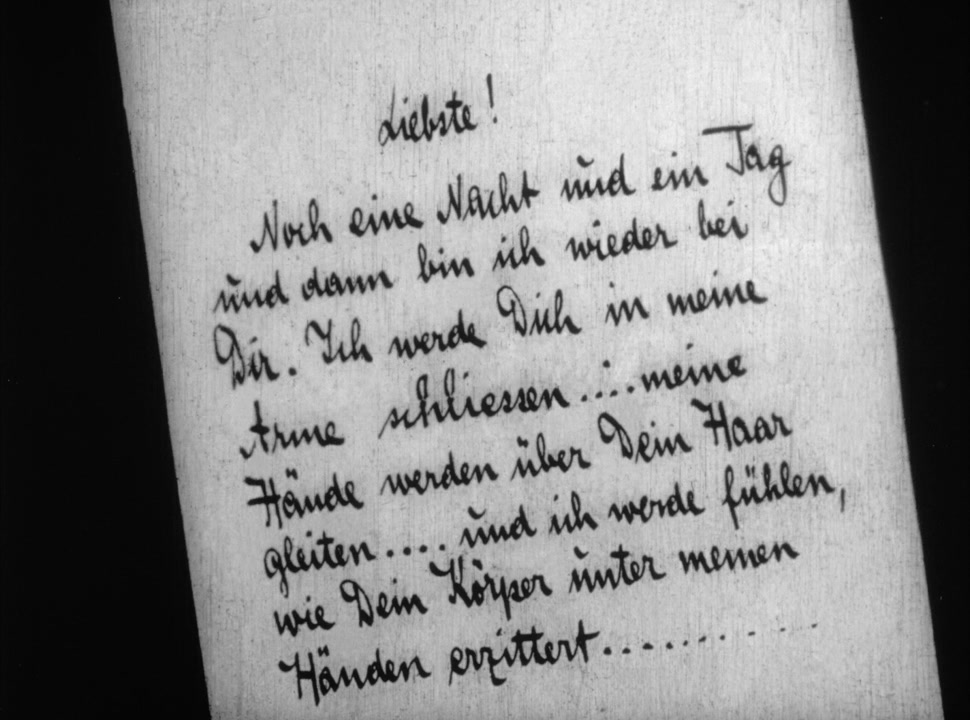 Liebste!
Noch eine Nacht und ein Tag
und dann bin ich wieder bei
Dir. Ich werde Dich in meine
Arme schliessen.....meine
Hände werden über Dein Haar
gleiten.... und ich werde fühlen,
wie Dein Körper unter meinen
Händen erzittert..........